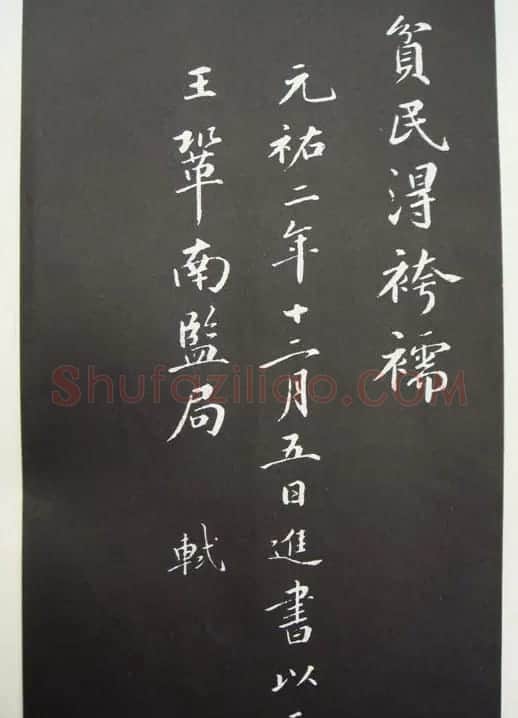 貧民淂袴襦
元祐二年十二月五日進書以
王鞏南監局 軾
Shufaziliao.COM